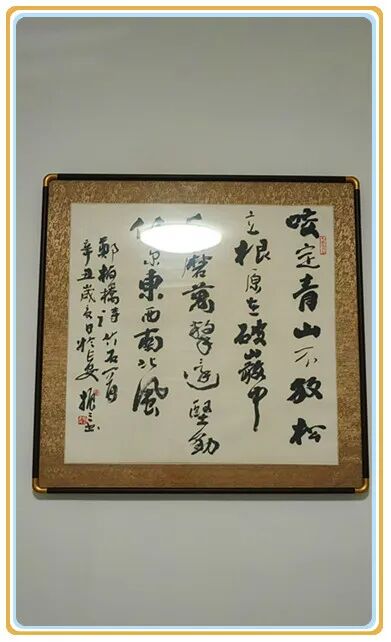 咬定青山不放松
立根原在破巖中
千磨萬擊還堅勁
任尔東西南北風
鄭板橋詩竹石一首
辛丑歲日於長安